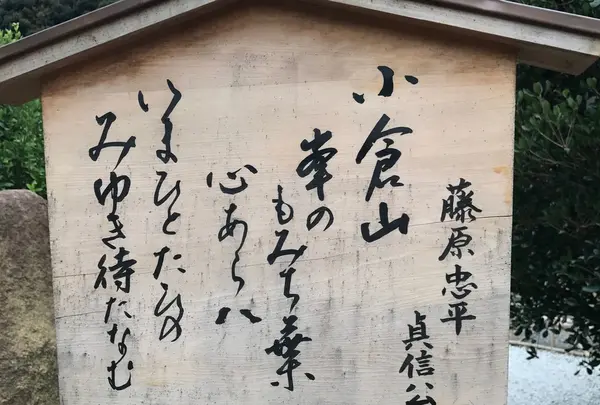 藤原忠平
貞信公
小倉山
峯の
もみち葉
心あらハ
いまひとたひの
みゆき待たなむ